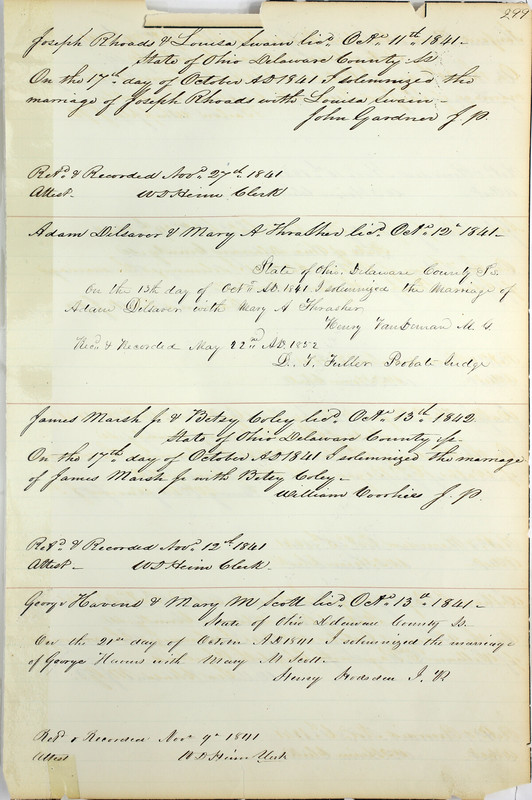 299
Joseph Rhoads & Louisa Swain licd. Octr. 11th 1841-
State of Ohio Delaware County Ss
On the 17th day of October AD 1841 I solemnized the
marriage of Joseph Rhoads with Louisa Swain-
John Gardner J P.
Retd. & Recorded Novr. 27th 1841
Attest. W D Heim Clerk
Adam Dilsaver & Mary A Thrasher licd. Octr. 12th 1841-
State of Ohio, Delaware County Ss.
On the 13th day of Octr. AD. 1841 I solemnized the Marriage of
Adam Dilsaver with Mary A Thrasher
Henry VanDeman M. G
Recd. & Recorded May 22nd AD. 1852
D. T. Fuller Probate Judge
James Marsh Jr & Betsy Coley licd. Octr. 13th 1842
State of Ohio Delaware County
On the 17th day of October AD 1841 I solemnized the marriage
of James Marsh Jr with Betsy Coley-
William Voorhies J. P.
Retd. & Recorded Novr. 12th 1841
Attest- W D Heim Clerk-
George Havens & Mary M Scott licd. Octr. 13th 1841-
State of Ohio Delaware County Ss.
On the 21st day of October A.D 1841 I solemnized the marriage
of George Havens with Mary M Scott-
Henry Hodsden J. P.
Retd. & Recorded Novr. 9th 1841
Attest W D Heim Clerk